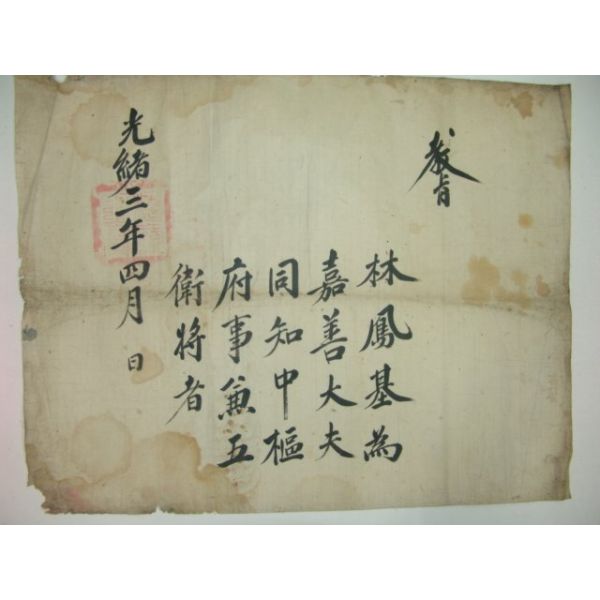 教旨
林鳳基為
嘉善大夫
同知中樞
府事兼五
衛将者
光緒三年四月 日